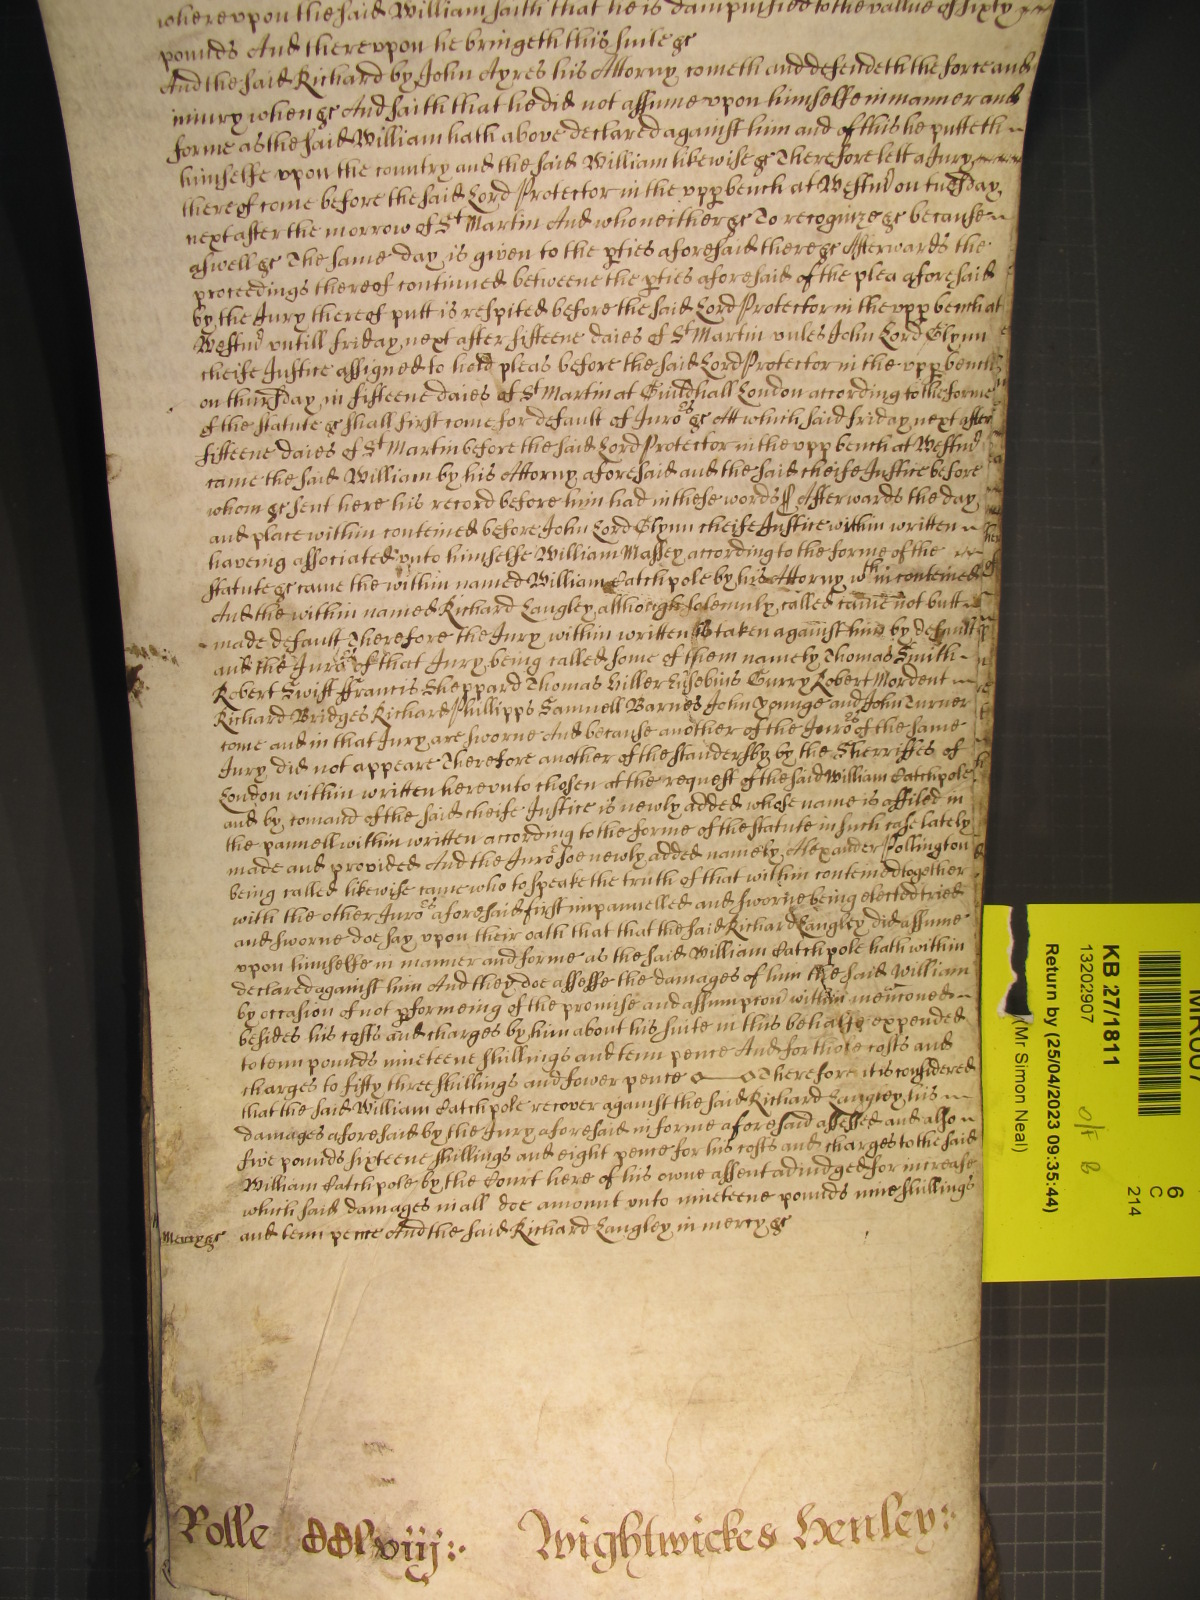 whereupon the said William saith that he is dampnified to the vallue of sixty
pounds And thereupon he bringeth this suite &c
And the said Richard by John Ayres his Attorny cometh and defendeth the force and
iniury when &c And saith that he did not assume upon himselfe in manner and
forme as the said William hath above declared against him and of this he putteth
himselfe upon the country and the said William likewise &c Therefore lett a Jury
thereof come before the said Lord Protector in the upp bench at Westmr on tuesday
next after the morrow of St Martin And who neither &c To recognize &c because
aswell &c The same day is given to the pties aforesaid there &c Afterwards the
proceedings thereof continued betweene the pties aforesaid of the plea aforesaid
by the Jury thereof putt is respited before the said Lord Protector in the upp bench at
Westmr untill friday next after fifteene daies of St Martin unles John Lord Glynn
cheife Justice assigned to hold pleas before the said Lord Protector in the upp bench
on thursday in fifteene daies of St Martin at Guildhall London according to the forme
of the statute &c shall first come for default of Jurors &c Att which said friday next after
fifteene daies of St Martin before the said Lord Protector in the upp bench at Westmr
came the said William by his Attorny aforesaid and the said cheife Justice before
whom &c sent here his record before him had in these words ss Afterwards the day
and place within conteined before John Lord Glynn cheife Justice within written
haveing associated unto himselfe William Massey according to the forme of the
statute &c came the within named William Catchpole by his Attorny wthin conteined
And the within named Richard Langley although solemnly called came not butt
made default Therefore the Jury within written is taken against him by default
and the Jurors of that Jury being called some of them namely Thomas Smith
Robert Swift ffrancis Sheppard Thomas Hiller Eusebius Curry Robert Mordent
Richard Bridges Richard Phillipps Samuell Barnes John Younge and John Turner
come and in that Jury are sworne And because another of the Jurors of the same
Jury did not appeare Therefore another of the standersby by the Sherriffes of
London within written hereunto chosen at the request of the said William Catchpole
and by comand of the said cheife Justice is newly added whose name is affiled in
the pannell within written according to the forme of the statute in such case lately
made and provided And the Juror soe newly added namely Alexander Pollington
being called likewise came who to speake the truth of that within conteined together
with the other Jurors aforesaid first impannelled and sworne being elected tried
and sworne doe say upon their oath that that the said Richard Langley did assume
upon himselfe in manner and forme as the said William Catchpole hath within
declared against him And they doe assesse the damages of him the said William
by occasion of not pformeing of the promise and assumpcon within mencioned
besides his costs and charges by him about his suite in this behalfe expended
to tenn pounds nineteene shillings and tenn pence And for those costs and
charges to fifty three shillings and fower pence Therefore it is considered
that the said William Catchpole recover against the said Richard Langley his
damages aforesaid by the Jury aforesaid in forme aforesaid assessed and also
five pounds sixteene shillings and eight pence for his costs and charges to the said
William Catchpole by the Court here of his owne assent adiudged for increase
which said damages in all doe amount unto nineteene pounds nine shillings
Mercy &c and tenn pence And the said Richard Langley in mercy &c
Rolle CClviij:
Wightwickes Henley:
KB 27/1811
13202907
Return by (25/04/2023 09:35:44)
(Mr Simon Neal)
6
C
214